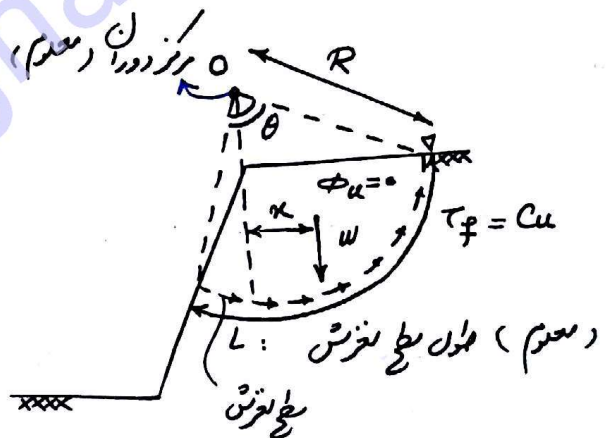 مرکز دوران (معلوم) O
R
θ
ϕu = 0
x
W
τf = Cu
L : طول سطح لغزش (معلوم)
سطح لغزش